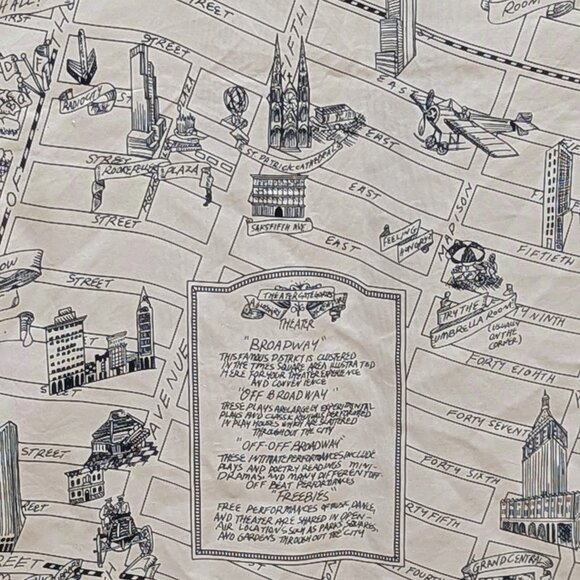 HALL!
ROOM
STREET
FIFTH
EAST
RADIO CITY
ST. PATRICK CATHEDRAL
EAST
STREET
ROCKEFELLER PLAZA
EAST
MADISON
STREET
SAKS FIFTH AVE.
FEELING
HUNGRY?
FIFTIETH
EAST
STREET
TRY THE
UMBRELLA ROOM
(USUALLY
ON THE
CORNER)
NINTH
FORTY EIGHTH
THEATER CATEGORIES
THEATER
"BROADWAY"
THIS FAMOUS DISTRICT IS CLUSTERED
IN THE TIMES SQUARE AREA ILLUSTRATED
HERE FOR YOUR THEATER EXPERIENCE
AND CONVENIENCE
"OFF BROADWAY"
THESE PLAYS ARE LARGELY EXPERIMENTAL
PLAYS AND CLASSIC REVIVALS PERFORMED
IN PLAY HOUSES WHICH ARE SCATTERED
THROUGHOUT THE CITY
"OFF-OFF BROADWAY"
THESE INTIMATE PERFORMANCES INCLUDE
PLAYS AND POETRY READINGS MINI-
DRAMAS AND MANY DIFFERENT OFF-
OFF BEAT PERFORMANCES
"FREEBIES"
FREE PERFORMANCES OF MUSIC, DANCE,
AND THEATER ARE SHARED IN OPEN
AIR LOCATIONS SUCH AS PARKS, SQUARES,
AND GARDENS THROUGHOUT THE CITY
AVENUE
FORTY SEVENT
FORTY SIXTH
FORTY FIFTH
GRAND CENTRAL
STREET